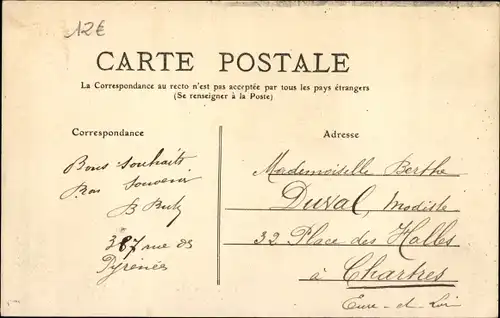 12€
CARTE POSTALE
La Correspondance au recto n'est pas acceptée par tous les pays étrangers
(Se renseigner à la Poste)
Correspondance
Bons Souhaits
Bon Souvenir
B
387 rue des
Pyrénées
Adresse
Mademoiselle Berthe
Duval, Modiste
32 Place des Halles
à Chartres
Eure-et-Loir